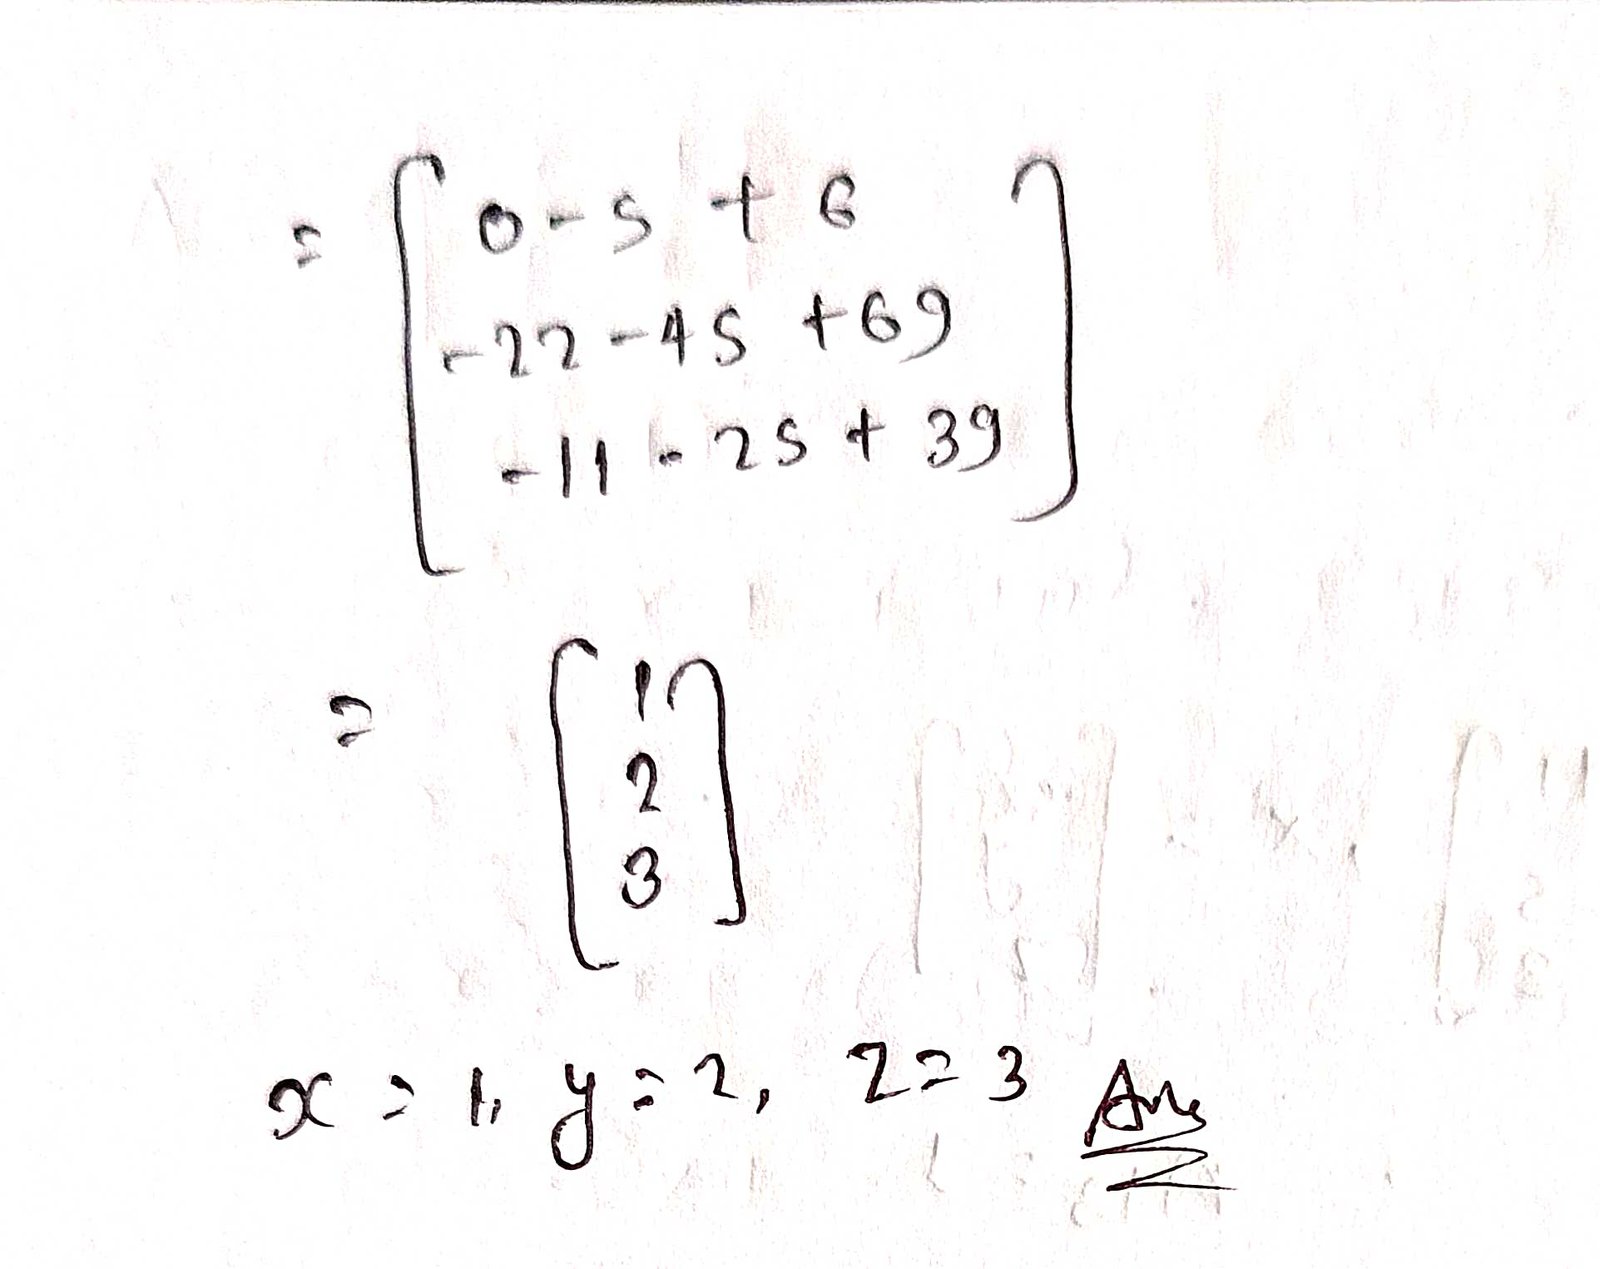 = [ 0 - 5 + 6
-22 - 45 + 69
-11 - 25 + 39 ]
= [ 1
2
3 ]
x = 1, y = 2, z = 3 Ans